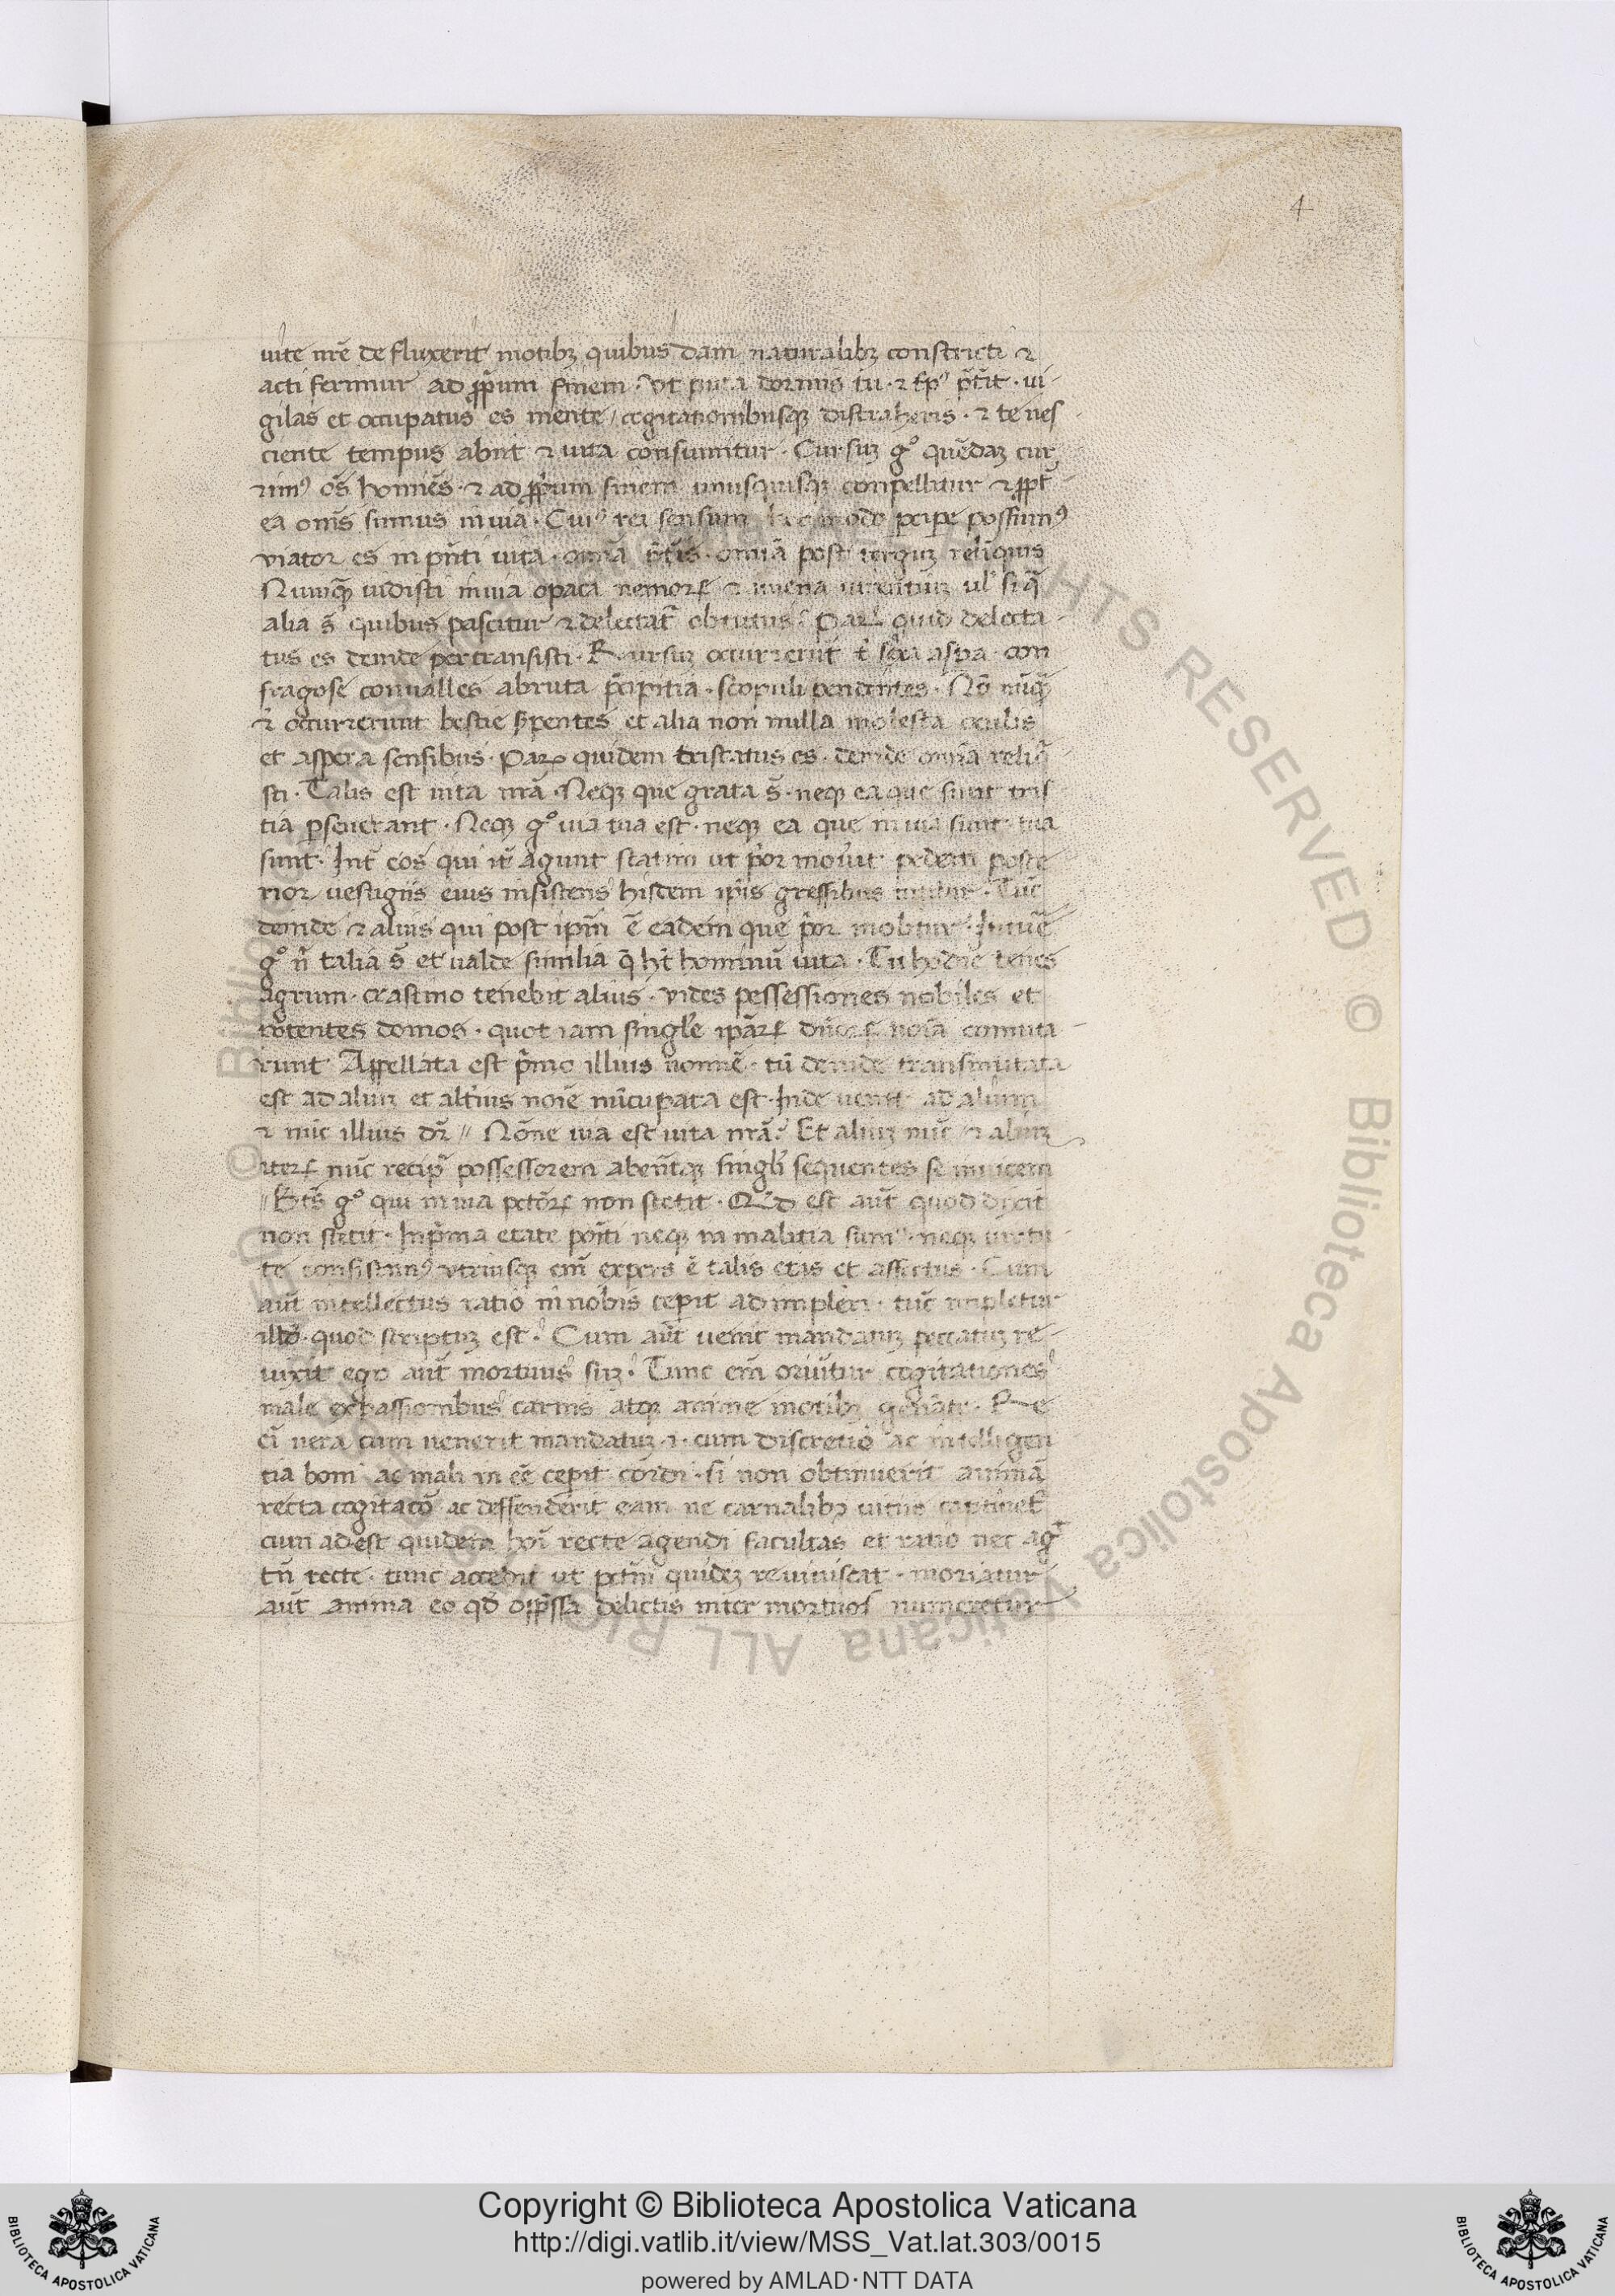 4
uite nr̄e de fluxerit motibȝ quibus dam naturalibȝ constricti ⁊
acti ferimur ad ꝓprium finem · Ut puta dormis tu · ⁊ tp̄s p̄terit · ui
gilas et occupatus es mente / cogitationibusqȝ distraheris · ⁊ te nes
ciente tempus abiit ⁊ uita consumitur · Cursuȝ gͦ quēdaȝ cur
rimꝰ oēs homines · ⁊ ad ꝓprium finem unusquisqȝ conpellitur ⁊ ꝓpt̄
ea om̄s sumus in uia · Cuiꝰ rei sensum hoc modo ꝑcipe possumꝰ
viator es in pn̄ti uita · omnia p̄teris · omnia post terguȝ relinquis
Numqȝ uidisti in uia opaca nemorꝝ ⁊
alia s̄ quibus pascitur ⁊ delectat̄ obtutus · Paruͫ quid delecta
tus es deinde pertransisti · Rursuȝ occurrerūt t̄ saxa aspa · con
fragose conualles abruta p̄cipitia · scopuli pendentes · Nō nūqȝ
⁊ occurrerunt bestie serpentes et alia non nulla molesta oculis
et aspera sensibus · Parū quidem tristatus es · deinde omnia reliq̄
sti · Talis est uita nr̄a · Neqȝ que grata s̄ · neqȝ ea que sunt tris
tia ꝑseuerant · Neqȝ gͦ uia tua est · neqȝ ea que in uia sunt · tua
sunt · Int̄ eos qui it̄ agunt statim ut p̄or mouit pedem poste
rior uestigiis eius insistens hisdem ip̄is gressibus · Tūc
deinde ⁊ alius qui post ip̄m ē eadem que p̄or molitur · Intuē
gͦ n̄ talia s̄ et ualde similia q̄ ht̄ hominū uita · Tu hodie tenes
agrum · crastino tenebit alius · vides possessiones nobiles et
potentes domos · quot iam singule ipārꝝ noīa commuta
runt Appellata est p̄mo illius nomīe · tū deinde transmutata
est ad aliuȝ et alt̄ius noīe nūcupata est · Inde uenit ad alium
⁊ nūc illius dr̄ // Nōne uia est uita nr̄a? Et aliuȝ nūc ⁊ aliuȝ
iterꝝ nūc recipit possessorem abeūtqȝ singuli sequentes se inuicem
// Btūs gͦ qui in uia pctōrꝝ non stetit · Quid est aūt quod dicit
non stetit · In p̄ma etate poīti neqȝ in malitia sumꝰ · neqȝ uirtu
te consistimꝰ utriusqȝ em̄ expers ē talis etas et affectus · Cum
aūt intellectus ratio in nobis cepit ad impleri · tūc impletur
illud · quod scriptuȝ est · Cum aūt uenit mandatuȝ peccatuȝ re
uixit ego aūt mortuus suȝ · Tunc em̄ oriūtur cogitationes
male ex passionibus carnis atqȝ anime motibȝ gen̄ate · Re
ei uera cum uenerit mandatuȝ · i · cum discretio ac intelligen
tia boni ac mali in eē cepit cordi · si non obtinuerit animā
recta cogitatō ac deffenderit eam ne carnalibȝ uitiis captiuet̄
cum adest quidem hoī recte agendi facultas et ratio nec agt̄
tn̄ recte · tunc accedit ut pctm̄ quideȝ reuiuiscat · moriatur
aūt anima eo qd̄ opp̄ssa delictis inter mortuos numeretur
Copyright © Biblioteca Apostolica Vaticana
http://digi.vatlib.it/view/MSS_Vat.lat.303/0015
powered by AMLAD·NTT DATA
BIBLIOTECA APOSTOLICA VATICANA
BIBLIOTECA APOSTOLICA VATICANA
© Biblioteca Apostolica Vaticana ALL RIGHTS RESERVED